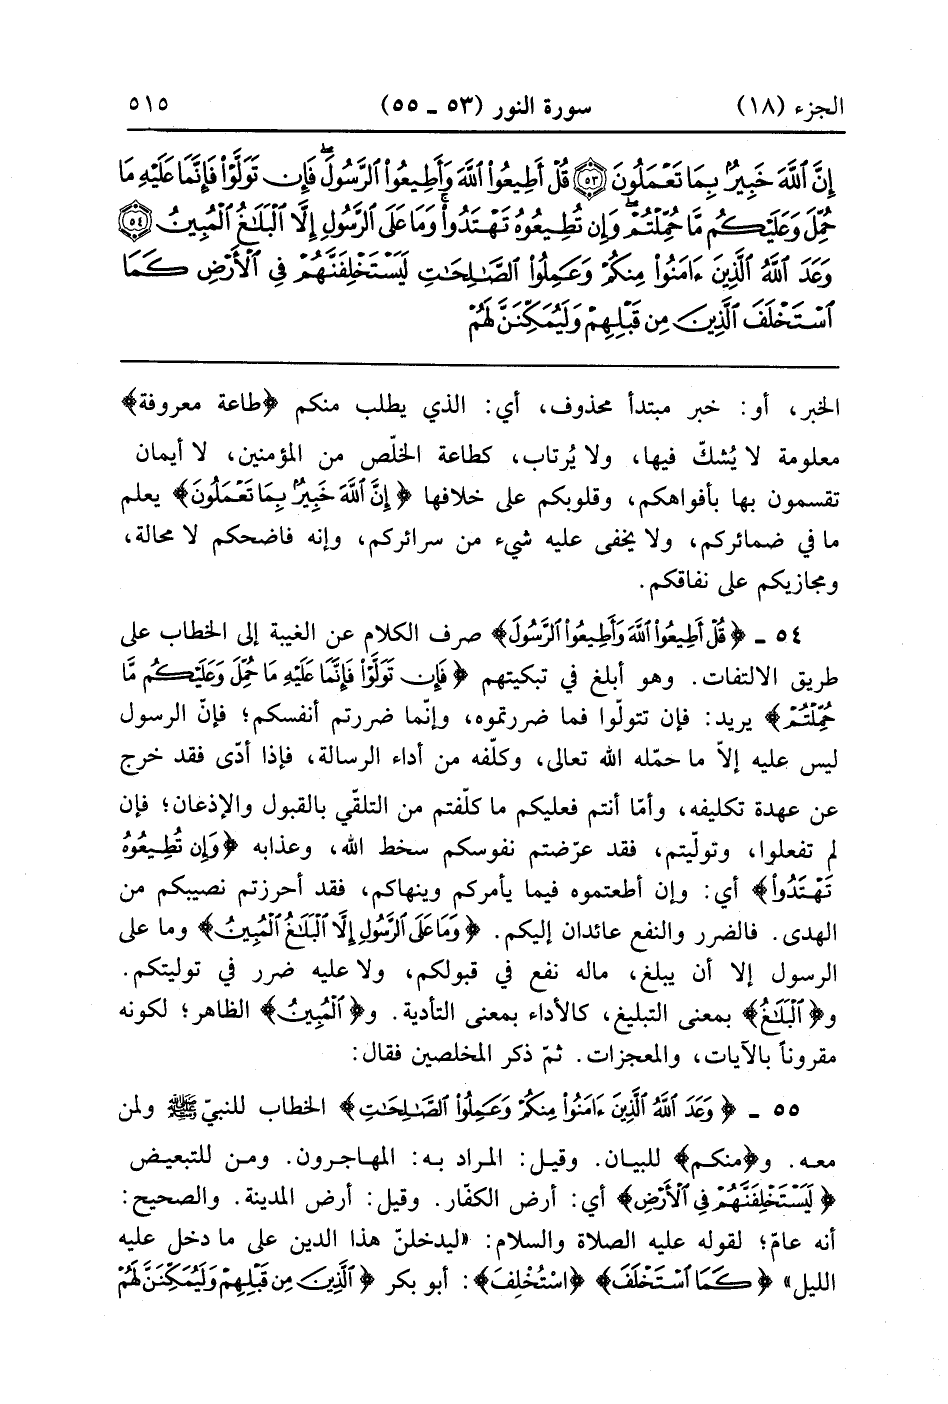 الجزء (١٨) سورة النور (٥٣ ـ ٥٥) ٥١٥
إِنَّ ٱللَّهَ خَبِيرٌۢ بِمَا تَعۡمَلُونَ ٥٣ قُلۡ أَطِيعُوا۟ ٱللَّهَ وَأَطِيعُوا۟ ٱلرَّسُولَۖ فَإِن تَوَلَّوۡا۟ فَإِنَّمَا عَلَيۡهِ مَا
حُمِّلَ وَعَلَيۡكُم مَّا حُمِّلۡتُمۡۖ وَإِن تُطِيعُوهُ تَهۡتَدُوا۟ۚ وَمَا عَلَى ٱلرَّسُولِ إِلَّا ٱلۡبَلَٰغُ ٱلۡمُبِينُ ٥٤
وَعَدَ ٱللَّهُ ٱلَّذِينَ ءَامَنُوا۟ مِنكُمۡ وَعَمِلُوا۟ ٱلصَّٰلِحَٰتِ لَيَسۡتَخۡلِفَنَّهُمۡ فِى ٱلۡأَرۡضِ كَمَا
ٱسۡتَخۡلَفَ ٱلَّذِينَ مِن قَبۡلِهِمۡ وَلَيُمَكِّنَنَّ لَهُمۡ
الخبر، أو: خبر مبتدأ محذوف، أي: الذي يطلب منكم ﴿طاعة معروفة﴾
معلومة لا يُشكّ فيها، ولا يُرتاب، كطاعة الخلّص من المؤمنين، لا أيمان
تقسمون بها بأفواهكم، وقلوبكم على خلافها ﴿إِنَّ ٱللَّهَ خَبِيرٌۢ بِمَا تَعۡمَلُونَ﴾ يعلم
ما في ضمائركم، ولا يخفى عليه شيء من سرائركم، وإنه فاضحكم لا محالة،
ومجازيكم على نفاقكم.
٥٤ ـ ﴿قُلۡ أَطِيعُوا۟ ٱللَّهَ وَأَطِيعُوا۟ ٱلرَّسُولَ﴾ صرف الكلام عن الغيبة إلى الخطاب على
طريق الالتفات. وهو أبلغ في تبكيتهم ﴿فَإِن تَوَلَّوۡا۟ فَإِنَّمَا عَلَيۡهِ مَا حُمِّلَ وَعَلَيۡكُم مَّا
حُمِّلۡتُمۡ﴾ يريد: فإن تتولّوا فما ضررتموه، وإنّما ضررتم أنفسكم؛ فإنّ الرسول
ليس عليه إلاّ ما حمّله الله تعالى، وكلّفه من أداء الرسالة، فإذا أدّى فقد خرج
عن عهدة تكليفه، وأمّا أنتم فعليكم ما كلّفتم من التلقّي بالقبول والإذعان؛ فإن
لم تفعلوا، وتولّيتم، فقد عرّضتم نفوسكم سخط الله، وعذابه ﴿وَإِن تُطِيعُوهُ
تَهۡتَدُوا۟﴾ أي: وإن أطعتموه فيما يأمركم وينهاكم، فقد أحرزتم نصيبكم من
الهدى. فالضرر والنفع عائدان إليكم. ﴿وَمَا عَلَى ٱلرَّسُولِ إِلَّا ٱلۡبَلَٰغُ ٱلۡمُبِينُ﴾ وما على
الرسول إلا أن يبلغ، ماله نفع في قبولكم، ولا عليه ضرر في توليتكم.
و﴿ٱلۡبَلَٰغُ﴾ بمعنى التبليغ، كالأداء بمعنى التأدية. و﴿ٱلۡمُبِينُ﴾ الظاهر؛ لكونه
مقروناً بالآيات، والمعجزات. ثمّ ذكر المخلصين فقال:
٥٥ ـ ﴿وَعَدَ ٱللَّهُ ٱلَّذِينَ ءَامَنُوا۟ مِنكُمۡ وَعَمِلُوا۟ ٱلصَّٰلِحَٰتِ﴾ الخطاب للنبيّ ﷺ ولمن
معه. و﴿منكم﴾ للبيان. وقيل: المراد به: المهاجرون. ومن للتبعيض
﴿لَيَسۡتَخۡلِفَنَّهُمۡ فِى ٱلۡأَرۡضِ﴾ أي: أرض الكفّار. وقيل: أرض المدينة. والصحيح:
أنه عامّ؛ لقوله عليه الصلاة والسلام: «ليدخلنّ هذا الدين على ما دخل عليه
الليل» ﴿كَمَا ٱسۡتَخۡلَفَ﴾ ﴿اسْتُخْلِفَ﴾: أبو بكر ﴿ٱلَّذِينَ مِن قَبۡلِهِمۡ وَلَيُمَكِّنَنَّ لَهُمۡ